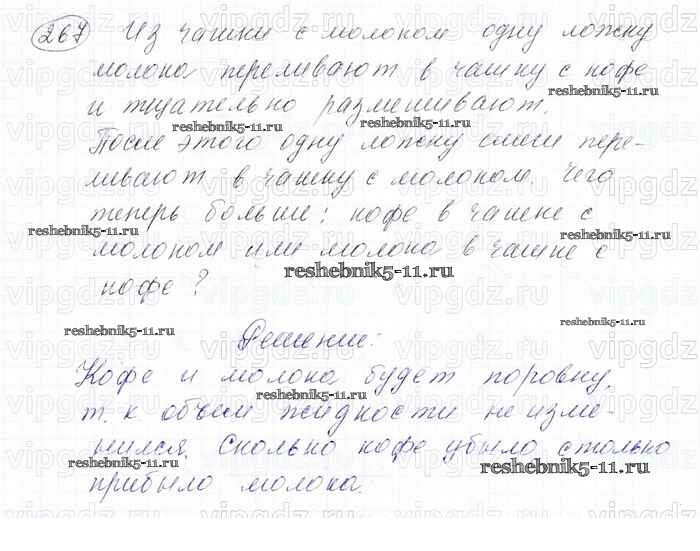 267 Из чашки с молоком одну ложку
молока переливают в чашку с кофе
и тщательно размешивают.
После этого одну ложку смеси пере-
ливают в чашку с молоком. Чего
теперь больше: кофе в чашке с
молоком или молока в чашке с
кофе?
Решение:
Кофе и молока будет поровну,
т. к объем жидкости не изме-
нился. Сколько кофе убыло столько
прибыло молока.
reshebnik5-11.ru
reshebnik5-11.ru
reshebnik5-11.ru
reshebnik5-11.ru
reshebnik5-11.ru
reshebnik5-11.ru
reshebnik5-11.ru
reshebnik5-11.ru
reshebnik5-11.ru
reshebnik5-11.ru
vipgdz.ru